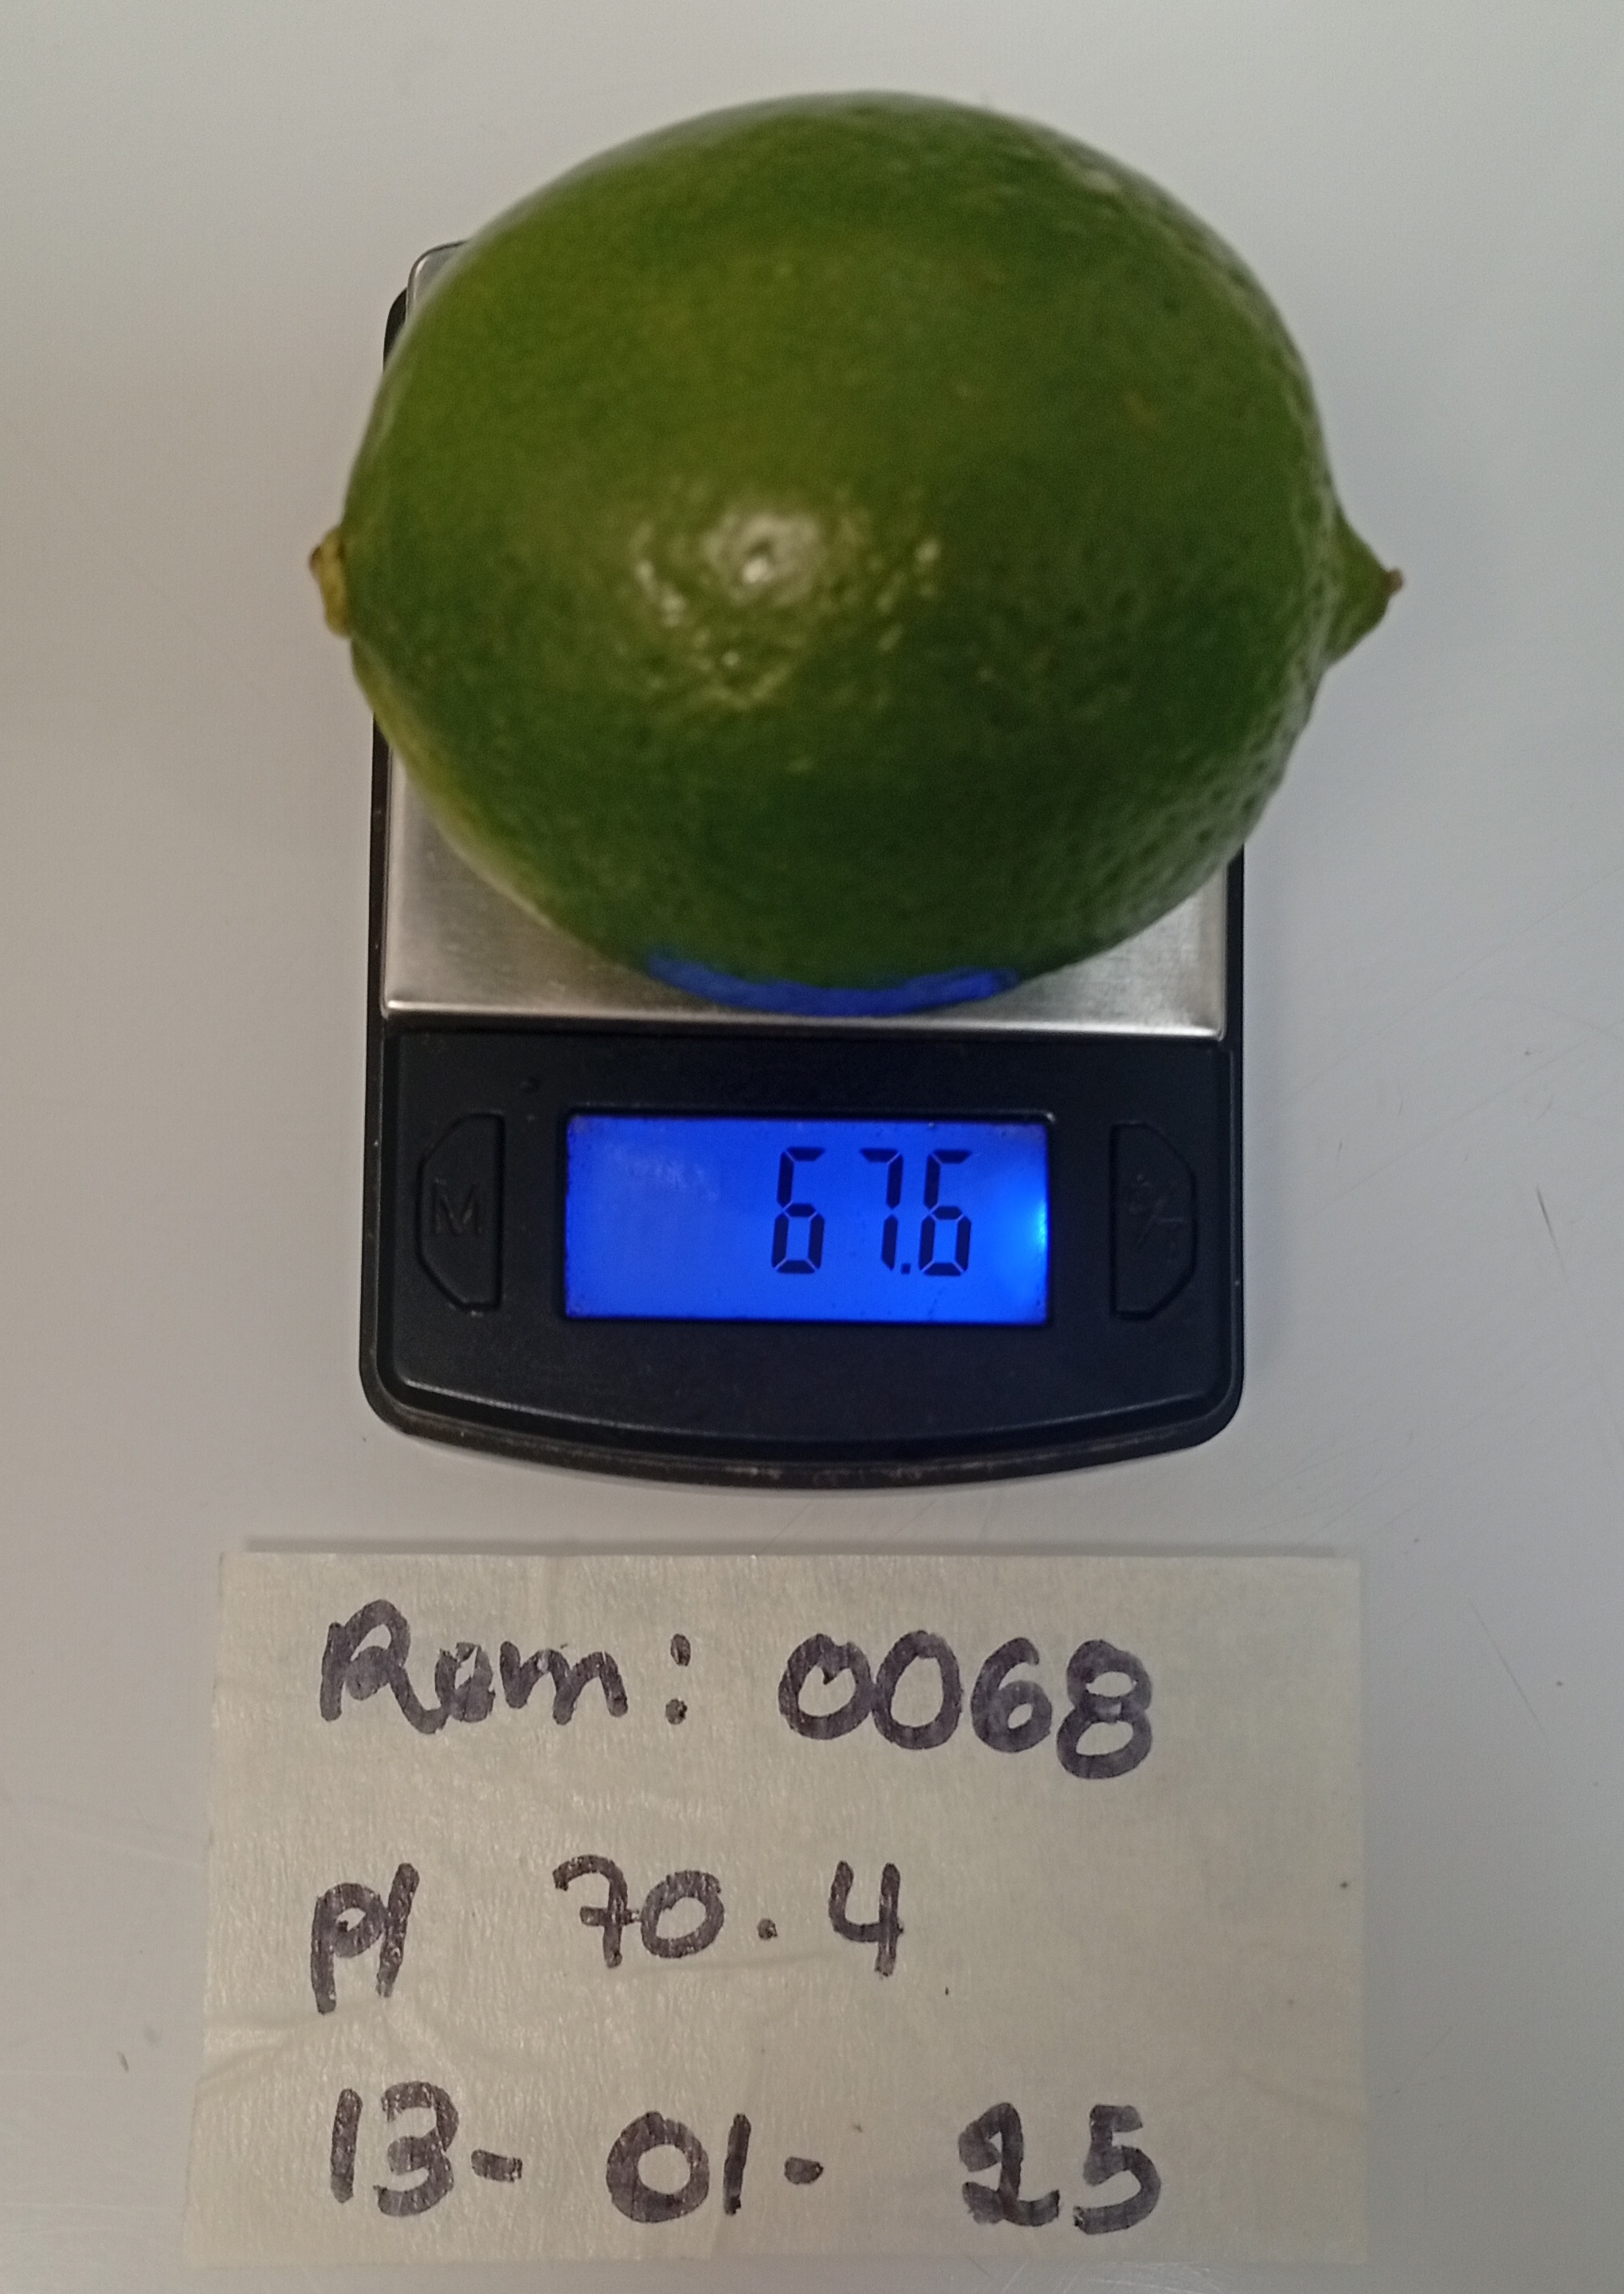 67.6
M
Rem: 0068
pl 70.4
13-01-25